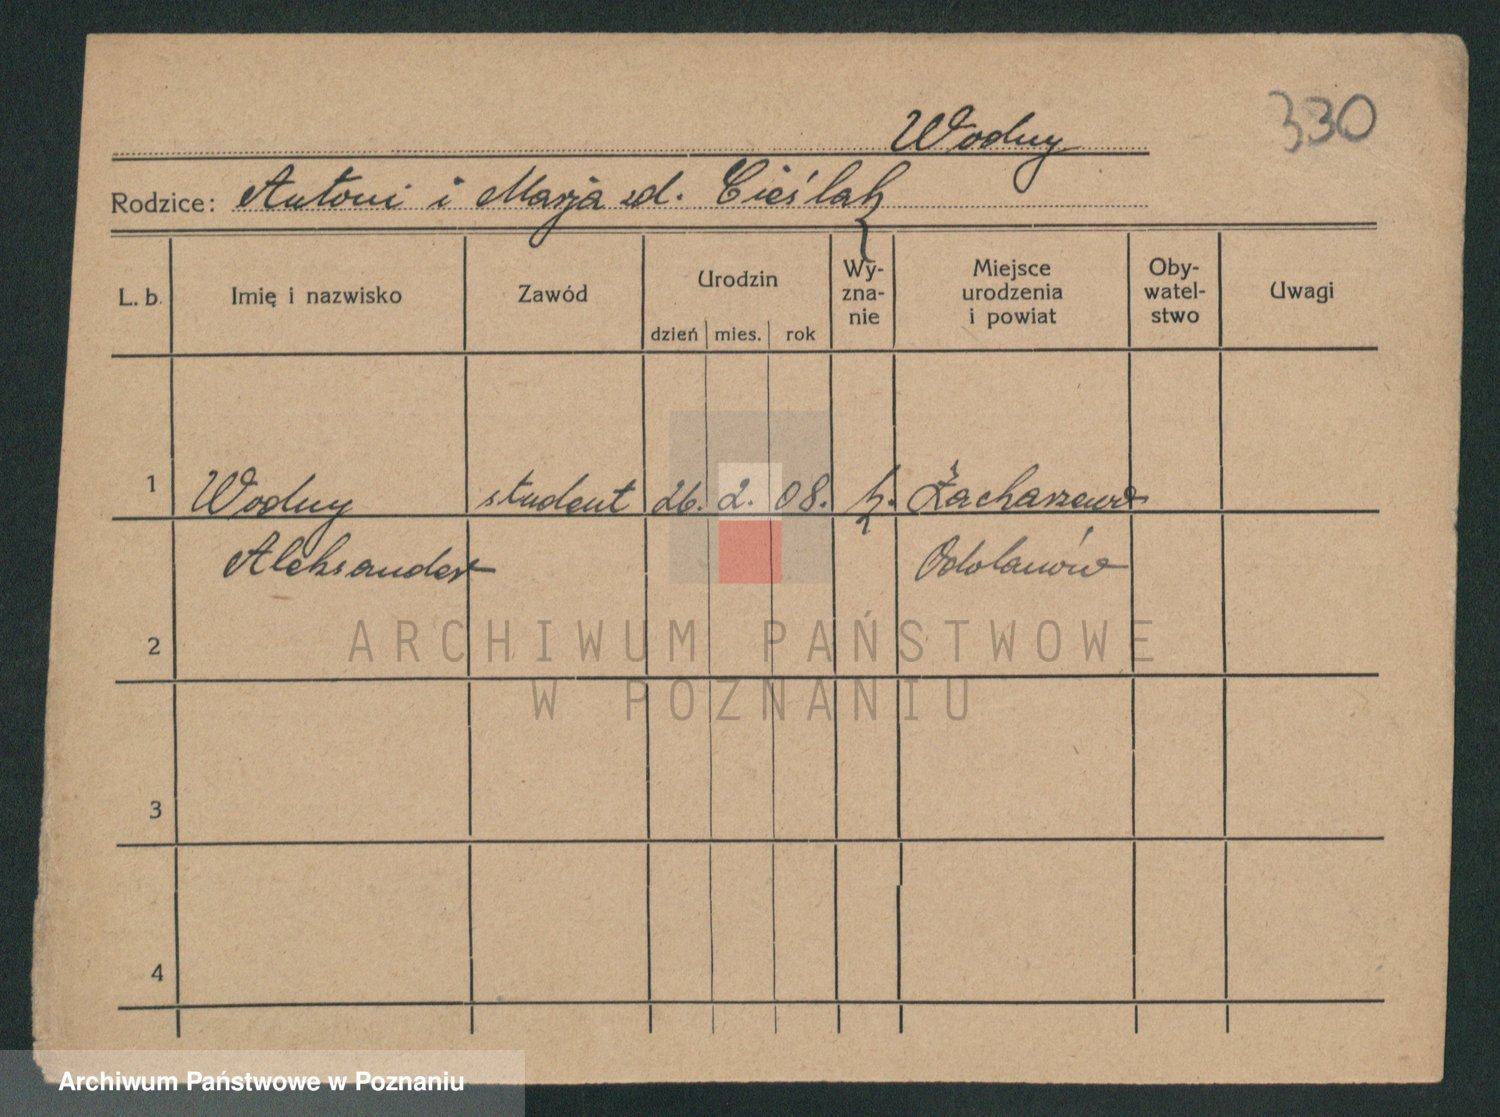 Wodny
330
Rodzice: Antoni i Marja zd. Cieślak
L. b.
Imię i nazwisko
Zawód
Urodzin
dzień mies. rok
Wy-
zna-
nie
Miejsce
urodzenia
i powiat
Oby-
watel-
stwo
Uwagi
1 Wodny student 26. 2. 08. k. Żacharzewo
Aleksander Odolanów
2
ARCHIWUM PAŃSTWOWE
W POZNANIU
3
4
Archiwum Państwowe w Poznaniu